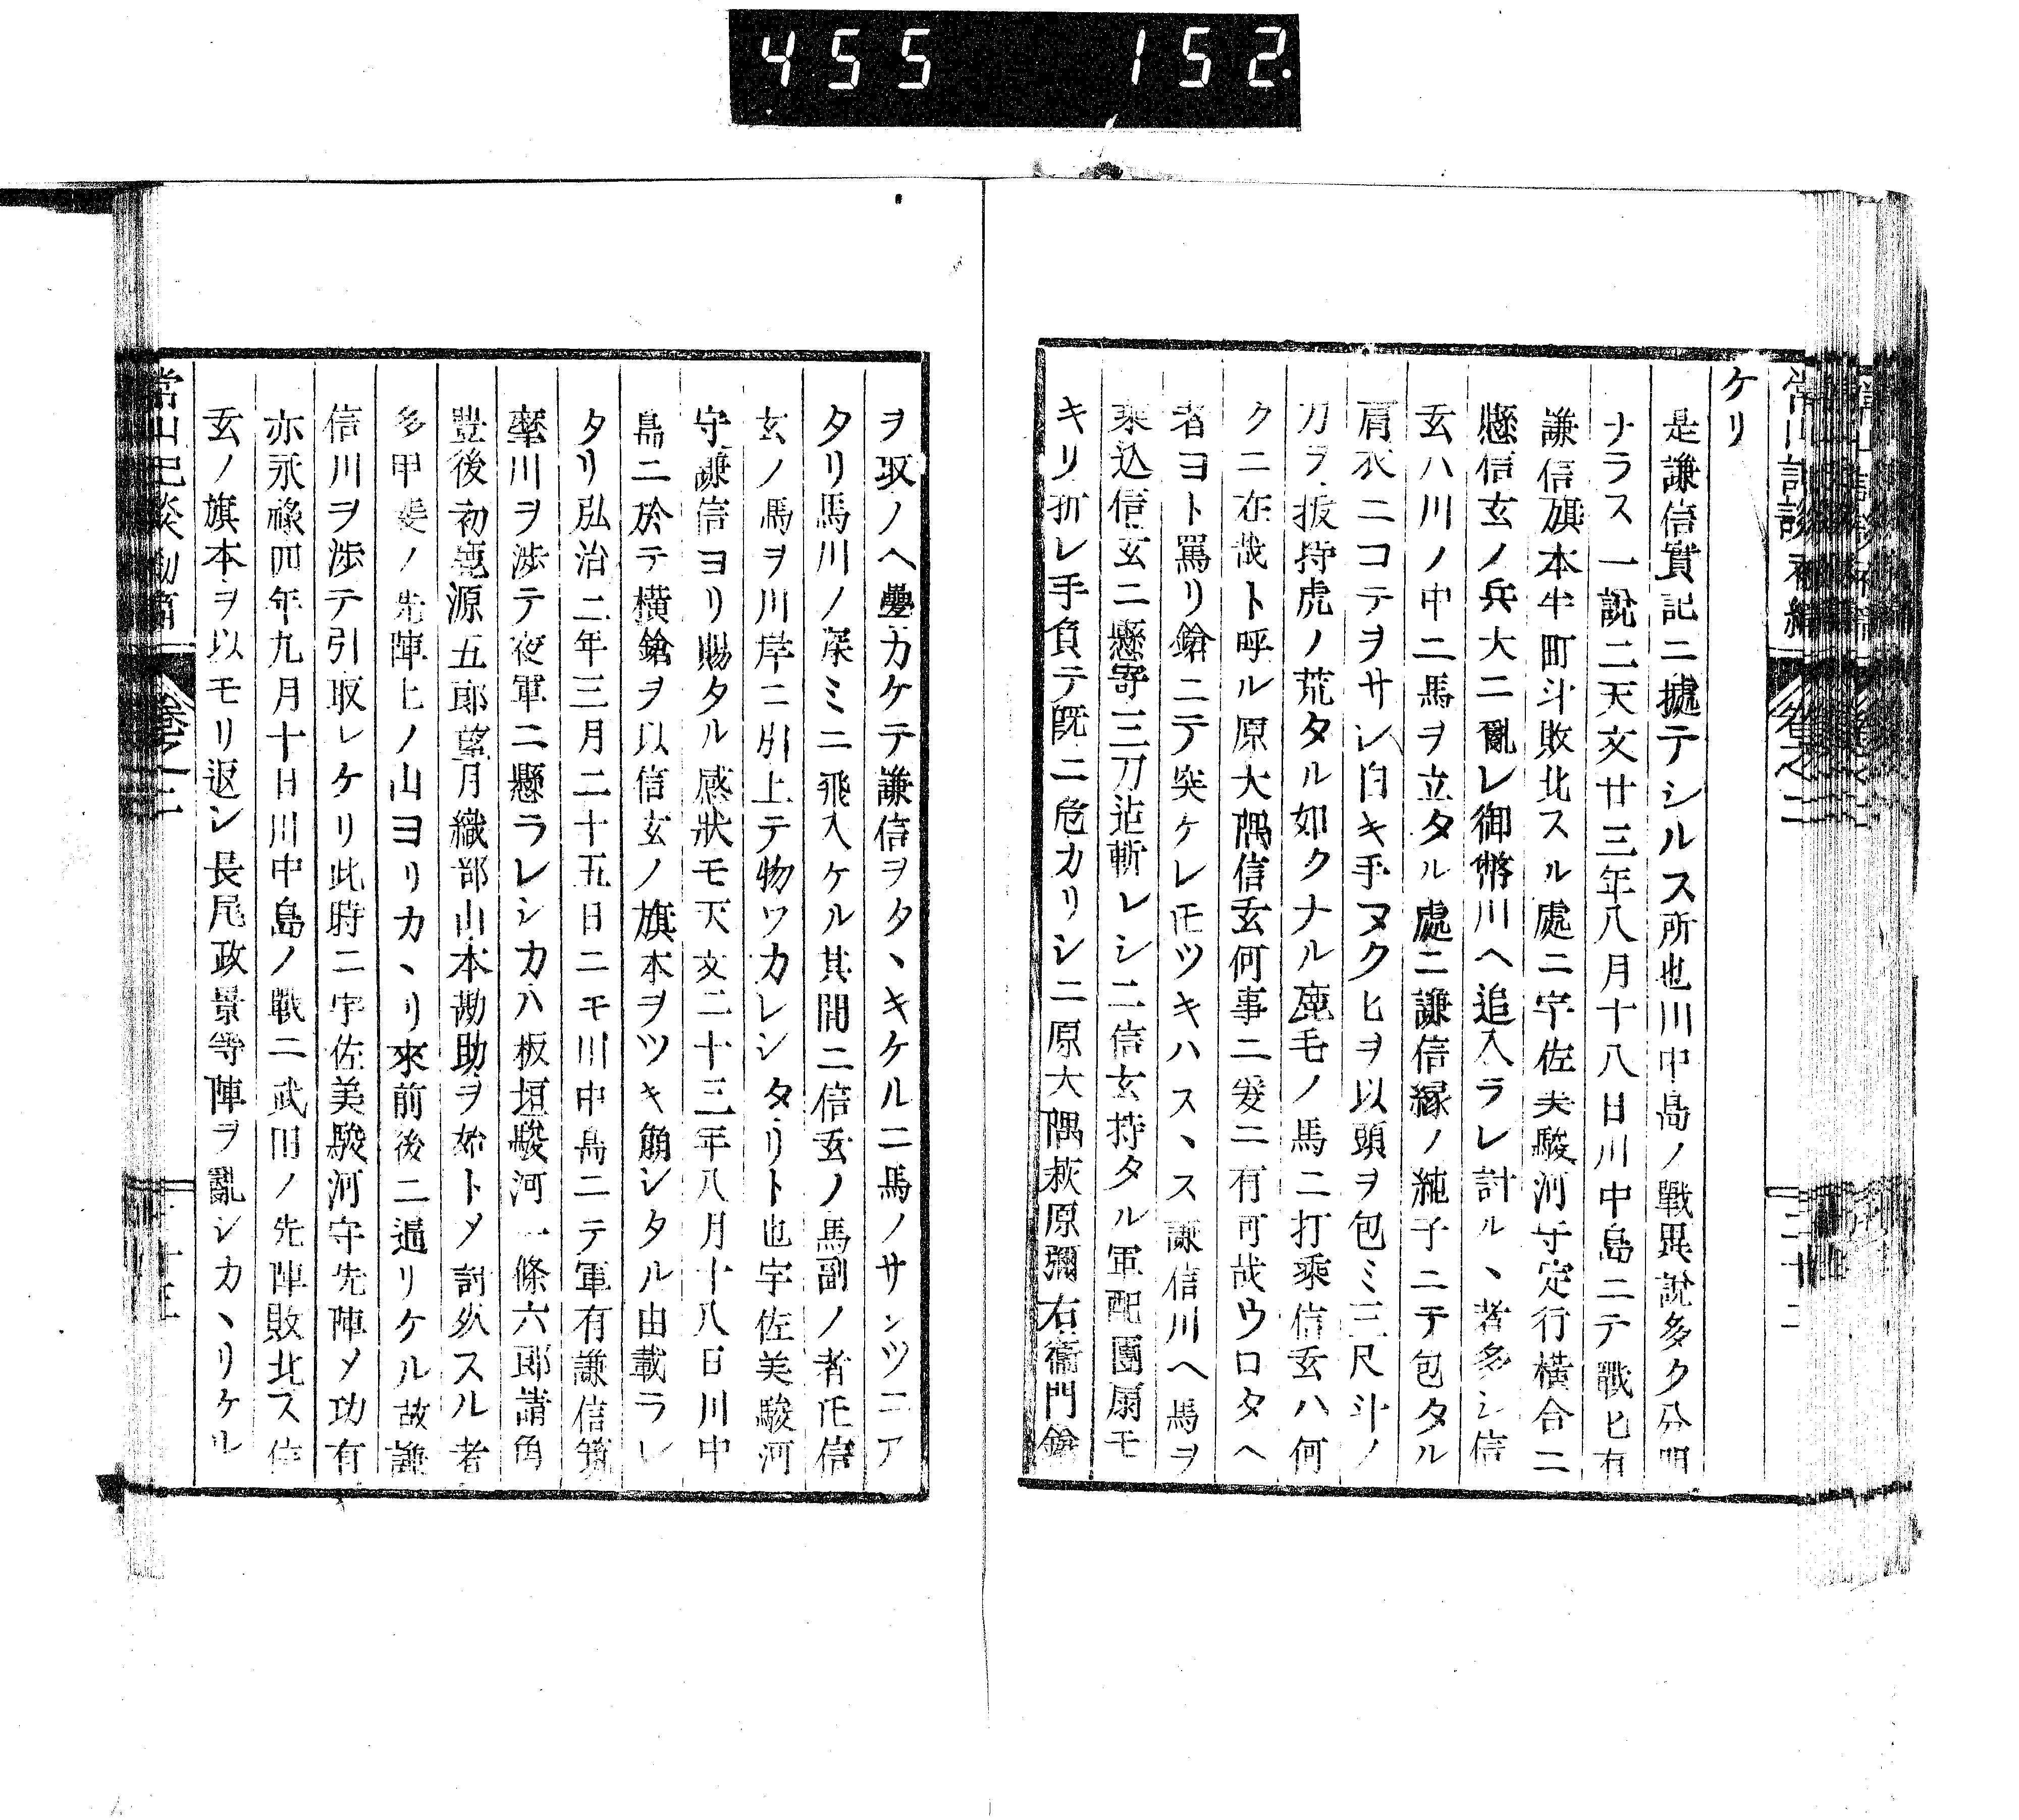 455 152
常山紀談初編 卷之二 二十二
ケリ
是謙信實記ニ據テシルス所也川中島ノ戰異說多ク分明
ナラス一說ニ天文廿三年八月十八日川中島ニテ戰ヒ有
謙信旗本半町斗敗北スル處ニ宇佐美駿河守定行橫合ニ
懸信玄ノ兵大ニ亂レ御幣川ヘ追入ラレ討ル丶者多シ信
玄ハ川ノ中ニ馬ヲ立タル處ニ謙信緣ノ純子ニテ包タル
肩衣ニコテヲサシ白キ手ヌクヒヲ以頭ヲ包ミ三尺斗ノ
刀ヲ拔持虎ノ荒タル如クナル鹿毛ノ馬ニ打乘信玄ハ何
クニ在哉ト呼ル原大隅信玄何事ニ爰ニ有可哉ウロタヘ
者ヨト罵リ鎗ニテ突ケレ𪜈ツキハス丶ス謙信川ヘ馬ヲ
乘込信玄ニ懸寄三刀迠斬レシニ信玄持タル軍配團扇モ
キリ折レ手負テ既ニ危カリシニ原大隅萩原彌右衞門鎗
ヲ取ノヘ疊カケテ謙信ヲタ丶キケルニ馬ノサンツニア
タリ馬川ノ深ミニ飛入ケル其間ニ信玄ノ馬副ノ者𪜈信
玄ノ馬ヲ川岸ニ引上テ物ワカレシタリト也宇佐美駿河
守謙信ヨリ賜タル感狀モ天文二十三年八月十八日川中
島ニ於テ橫鎗ヲ以信玄ノ旗本ヲツキ崩シタル由載ラレ
タリ弘治二年三月二十五日ニモ川中島ニテ軍有謙信筑
摩川ヲ渉テ夜軍ニ懸ラレシカハ板垣駿河一條六郎諸角
豐後初鹿源五郎望月織部山本勘助ヲ始トメ討死スル者
多甲斐ノ先陣ヒノ山ヨリカ丶リ來前後ニ逼リケル故謙
信川ヲ渉テ引取レケリ此時ニ宇佐美駿河守先陣メ功有
亦永祿四年九月十日川中島ノ戰ニ武田ノ先陣敗北ス信
玄ノ旗本ヲ以モリ返シ長尾政景等陣ヲ亂シカ丶リケル
常山紀談初篇 卷之二 二十三